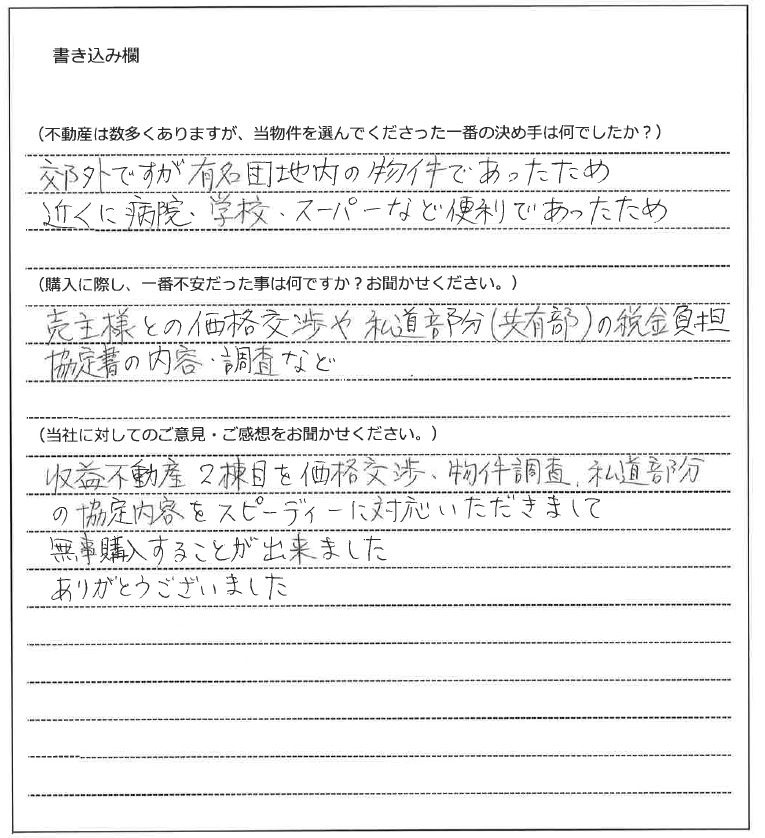 書き込み欄
（不動産は数多くありますが、当物件を選んでくださった一番の決め手は何でしたか？）
郊外ですが有名団地内の物件であったため
近くに病院、学校、スーパーなど便利であったため
（購入に際し、一番不安だった事は何ですか？お聞かせください。）
売主様との価格交渉や私道部分(共有部)の税金負担
協定書の内容・調査など
（当社に対してのご意見・ご感想をお聞かせください。）
収益不動産2棟目を価格交渉、物件調査、私道部分
の協定内容をスピーディーに対応いただきまして
無事購入することが出来ました
ありがとうございました